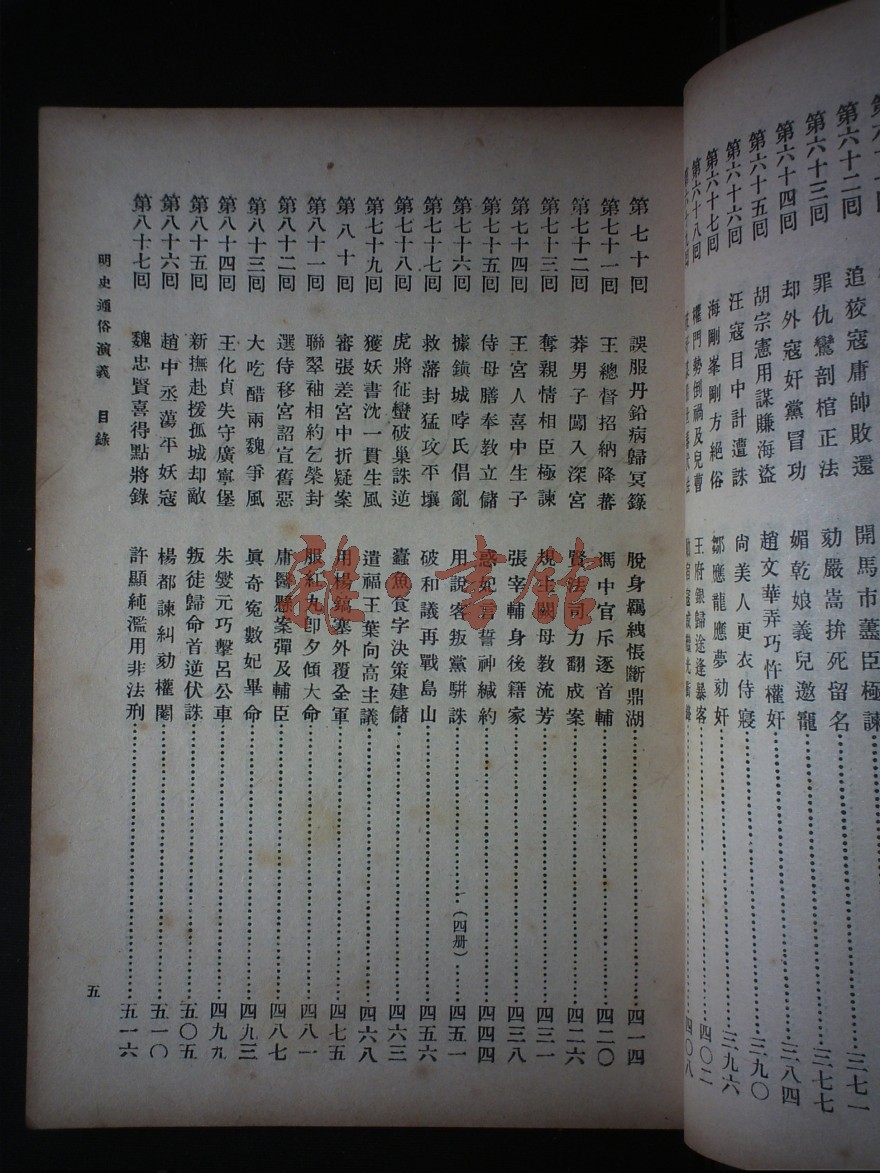 第六十二回 追狡寇庸帥敗還 開馬市藎臣極諫 三七一
第六十三回 罪仇鸞剖棺正法 劾嚴嵩拚死留名 三七七
第六十四回 却外寇奸黨冒功 媚乾娘義兒邀寵 三八四
第六十五回 胡宗憲用謀賺海盜 趙文華弄巧忤權奸 三九〇
第六十六回 汪寇目中計遭誅 尚美人更衣侍寢 三九六
第六十七回 海剛峯剛方絕俗 鄒應龍應夢劾奸 四〇二
第六十八回 權門勢倒禍及兒曹 王府銀歸途逢暴客 四〇八
第七十回 誤服丹鉛病歸冥籙 脫身羈紲悵斷鼎湖 四一四
第七十一回 王總督招納降蕃 馮中官斥逐首輔 四二〇
第七十二回 莽男子闖入深宮 賢法司力翻成案 四二六
第七十三回 奪親情相臣極諫 規主闕母教流芳 四三一
第七十四回 王宮人喜中生子 張宰輔身後籍家 四三八
第七十五回 侍母膳奉教立儲 惑妃言誓神緘約 四四四
第七十六回 據鎮城哱氏倡亂 用說客叛黨駢誅 (四册) 四五一
第七十七回 救藩封猛攻平壤 破和議再戰島山 四五六
第七十八回 虎將征蠻破巢誅逆 蠹魚食字決策建儲 四六三
第七十九回 獲妖書沈一貫生風 遣福王葉向高主議 四六八
第八十回 審張差宮中折疑案 用楊鎬塞外覆全軍 四七五
第八十一回 聯翠袖相約乞榮封 服紅丸卽夕傾大命 四八一
第八十二回 選侍移宮詔宣舊惡 庸醫懸案彈及輔臣 四八七
第八十三回 大吃醋兩魏爭風 眞奇冤數妃畢命 四九三
第八十四回 王化貞失守廣寧堡 朱燮元巧擊呂公車 四九九
第八十五回 新撫赴援孤城却敵 叛徒歸命首逆伏誅 五〇五
第八十六回 趙中丞蕩平妖寇 楊都諫糾劾權閹 五一〇
第八十七回 魏忠賢喜得點將錄 許顯純濫用非法刑 五一六
明史通俗演義 目錄
五
雜·書館